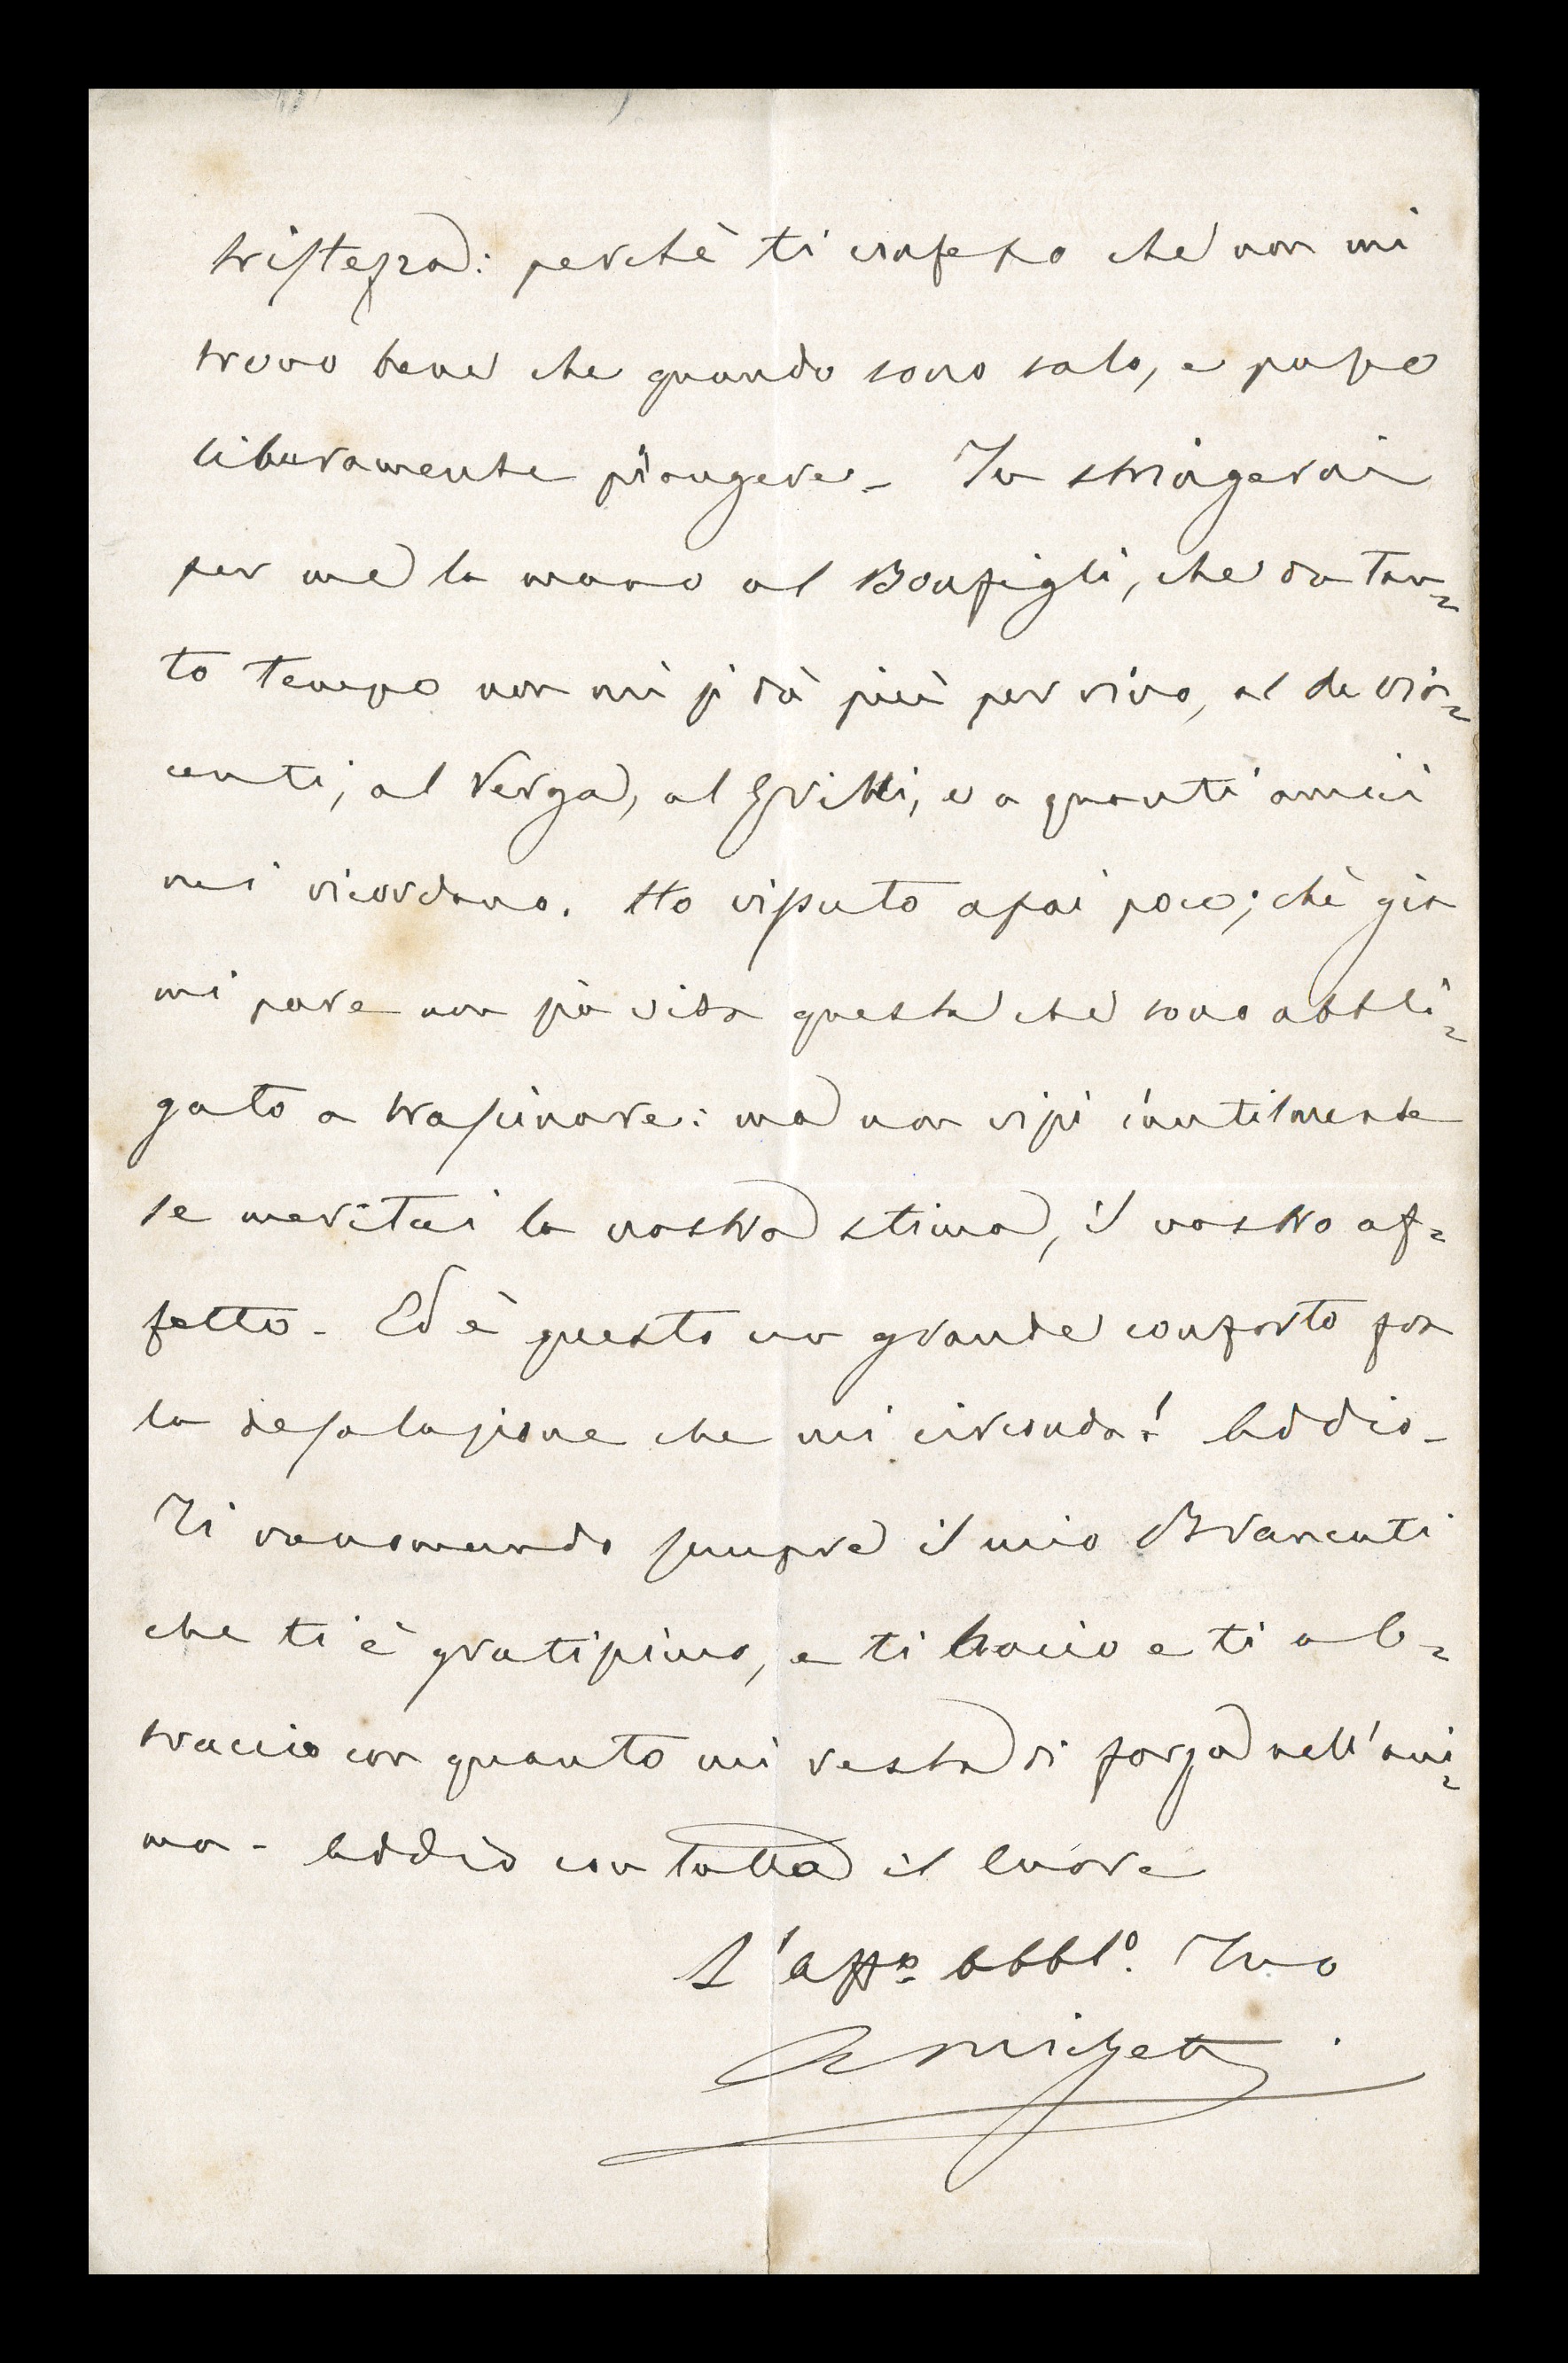 tristezza: perchè ti confesso che non mi
trovo bene che quando sono solo, e posso
liberamente piangere - Tu stringerai
per me la mano al Bonfigli, che da tan=
to tempo non mi si dà più per vivo, al de Vin=
centi, al Verga, al Gritti, e a quanti amici
mi ricordano. Ho vissuto assai poco; chè già
mi pare non sia vita questa che sono obbli=
gato a trascinare: ma non vissi inutilmente
se meritai la vostra stima, il vostro af=
fetto - Ed è questo un grande conforto fra
la desolazione che mi circonda! Addio -
Ti raccomando sempre il mio Brancuti
che ti è gratissimo, e ti bacio e ti ab=
braccio con quanto mi resta di forza nell'ani=
ma - Addio con tutto il cuore
L'affo obblo. Tuo